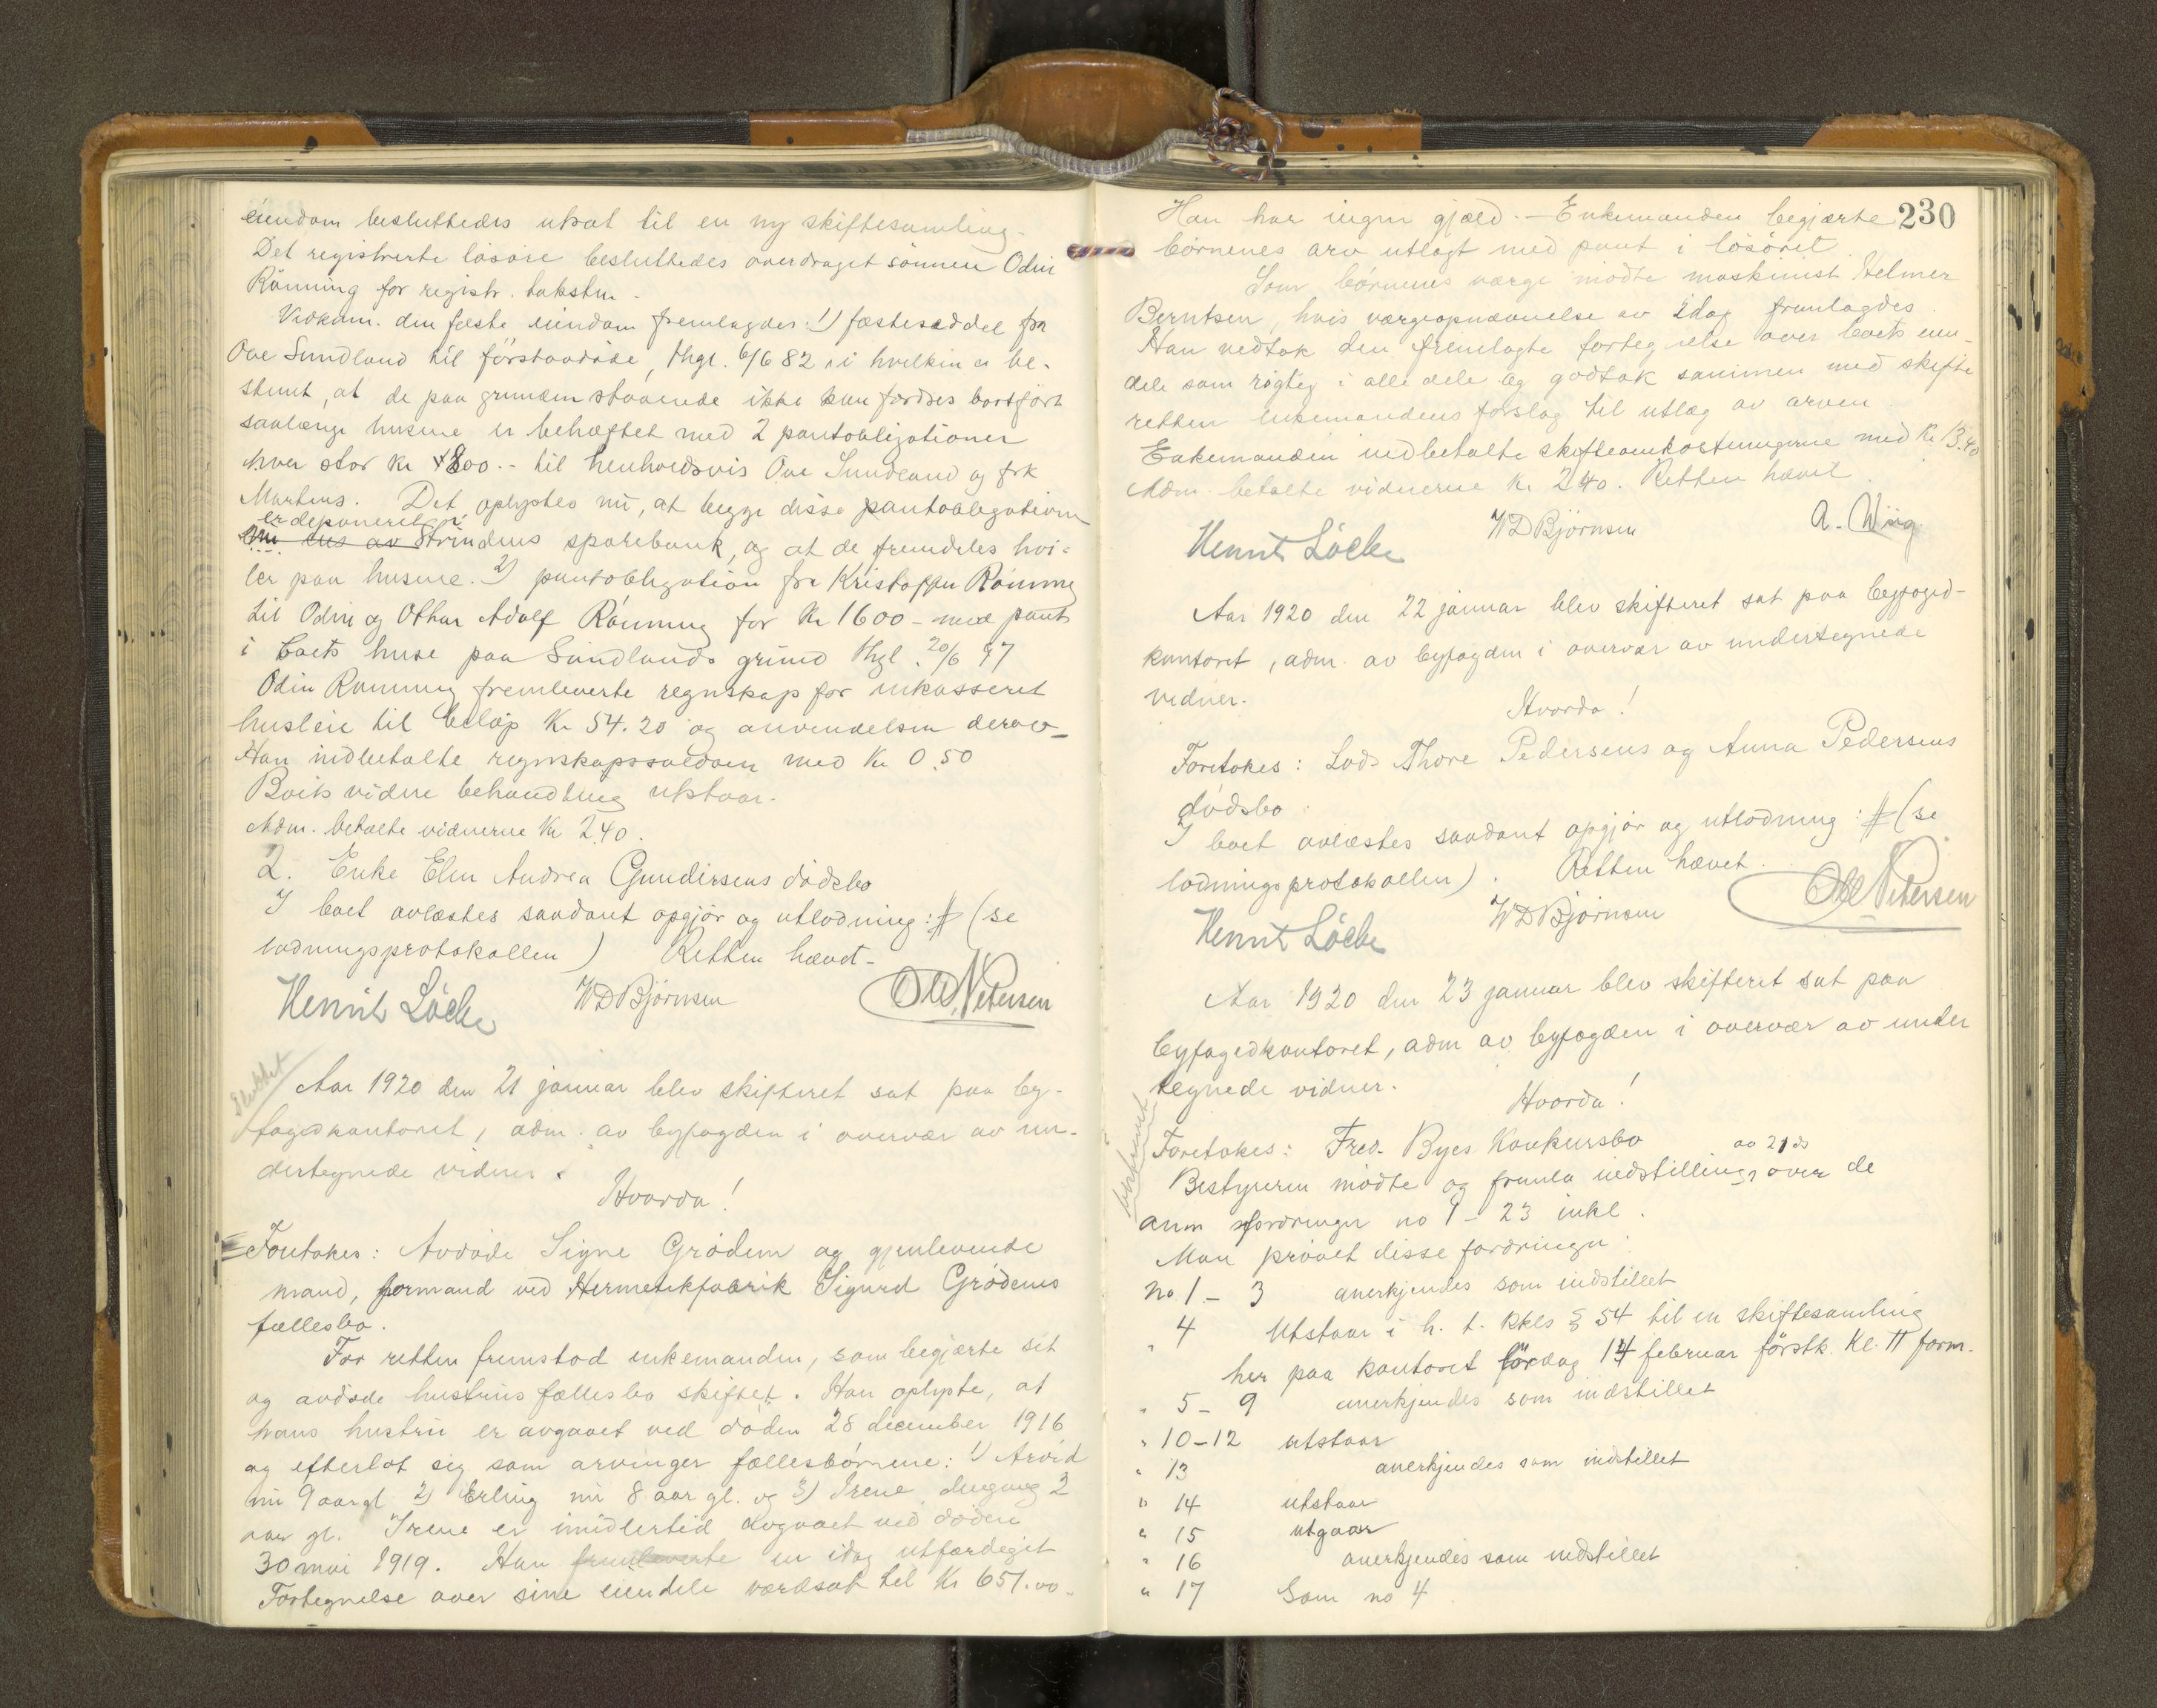 eiendom besluttedes utsat til en ny skiftesamling.
Det registrerte løsøre besluttedes overdraget sønnen Odin
Rönning for registr. taksten.
Vedkom. den faste eiendom fremlagdes: 1) fæstesæddel fra
Ove Sundland til førstavdøde, thgl. 6/6 82, i hvilken er be-
stemt, at de paa grunden staaende ikke kan fordres bortført
saalænge husene er behæftet med 2 pantobligationer
hver stor Kr 800.- til henholdsvis Ove Sundland og frk
Martens. Det oplystes nu, at begge disse pantobligationer
er deponeret i
nu eies av Strindens sparebank, og at de fremdeles hvi-
ler paa husene. 2) pantobligation fra Kristoffer Rönning
til Odin og Othar Adolf Rönning for Kr 1600 - med pant
i boets huse paa Sundlands grund thgl. 20/6 97
Odin Rönning fremleverte regnskap for inkasseret
husleie til beløp Kr 54.20 og anvendelsen derav-
Han indbetalte regnskapssaldoen med Kr 0.50
Boets videre behandling utstaar.
Adm. betalte vidnerne Kr 2.40.
2. Enke Elen Andrea Gundersens dødsbo
I boet avlæstes saadant opgjør og utlodning: # (se
lodningsprotokollen) Retten hævet-
Henrik Löcke WDBjörnsen Ole Petersen
Sluttet
Aar 1920 den 21 januar blev skifteret sat paa by-
fogedkontoret, adm. av byfogden i overvær av un-
dertegnede vidner.
Hvorda!
Foretokes: Avdøde Signe Grødem og gjenlevende
mand, formand ved Hermetikfabrik Sigurd Grødems
fællesbo.
For retten fremstod enkemanden, som begjærte sit
og avdøde hustrus fællesbo skiftet. Han oplyste, at
hans hustru er avgaaet ved døden 28 december 1916
og efterlot sig som arvinger fællesbørnene: 1) Arvid
nu 9 aar gl 2) Erling nu 8 aar gl. og 3) Irene dengang 2
aar gl. Irene er imidlertid avgaaet ved døden
30 mai 1919. Han fremleverte en idag utfærdiget
Fortegnelse over sine eiendele værdsat til Kr 651.00-
230
Han har ingen gjæld. - Enkemanden begjærte
børnenes arv utlagt med pant i løsøret
Som børnenes værge mødte maskinist Helmer
Berntsen, hvis værgeopnævnelse av idag fremlagdes.
Han vedtok den fremlagte fortegnelse over boets eien-
dele som rigtig i alle dele og godtok sammen med skifte
retten enkemandens forslag til utlæg av arven
Enkemanden indbetalte skifteomkostningerne med Kr 13.40
Adm. betalte vidnerne Kr 2.40. Retten hævet
Henrik Löcke WDBjörnsen A. Wiig
Aar 1920 den 22 januar blev skifteret sat paa byfoged-
kontoret, adm. av byfogden i overvær av undertegnede
vidner.
Hvorda!
Foretokes: Lods Thore Pedersens og Anna Pedersens
dødsbo.
I boet avlæstes saadant opgjør og utlodning: # (se
lodningsprotokollen). Retten hævet.
Henrik Löcke WDBjörnsen Ole Petersen
Aar 1920 den 23 januar blev skifteret sat paa
byfogedkontoret, adm av byfogden i overvær av under
tegnede vidner.
Hvorda!
Foretokes: Fred. Byes Konkursbo
av 21 ds
Bestyreren mødte og fremla indstilling over de
anm fordringer no 1 - 23 inkl.
Man prøvet disse fordringer.
No 1 - 3 anerkjendes som indstillet
" 4 Utstaar i h. t. kkls § 54 til en skiftesamling
her paa kontoret lørdag 14 februar førstk. Kl. 11 form.
" 5 - 9 anerkjendes som indstillet
" 10 - 12 utstaar
" 13 anerkjendes som indstillet
" 14 utstaar
" 15 utgaar
" 16 anerkjendes som indstillet
" 17 Som no 4